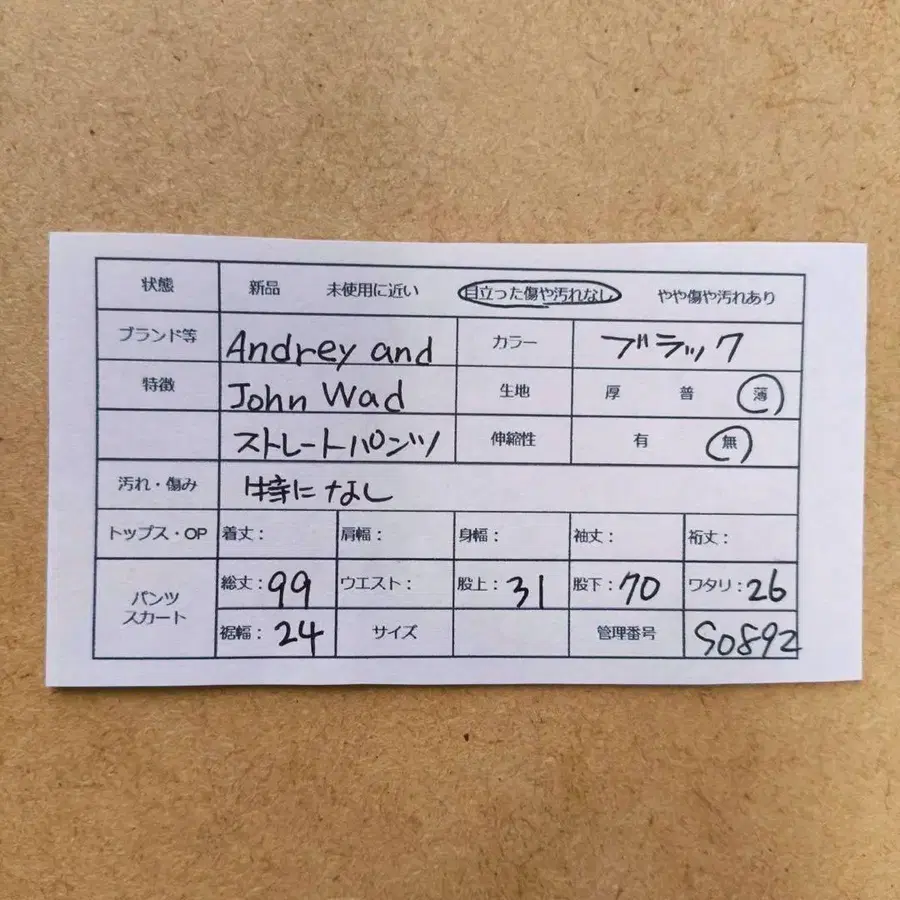 状態 新品 未使用に近い 目立った傷や汚れなし やや傷や汚れあり
ブランド等 Andrey and カラー ブラック
特徴 John Wad 生地 厚 普 薄
ストレートパンツ 伸縮性 有 無
汚れ・傷み 特になし
トップス・OP 着丈: 肩幅: 身幅: 袖丈: 裄丈:
パンツ スカート 総丈:99 ウエスト: 股上:31 股下:70 ワタリ:26
裾幅:24 サイズ 管理番号 S0892